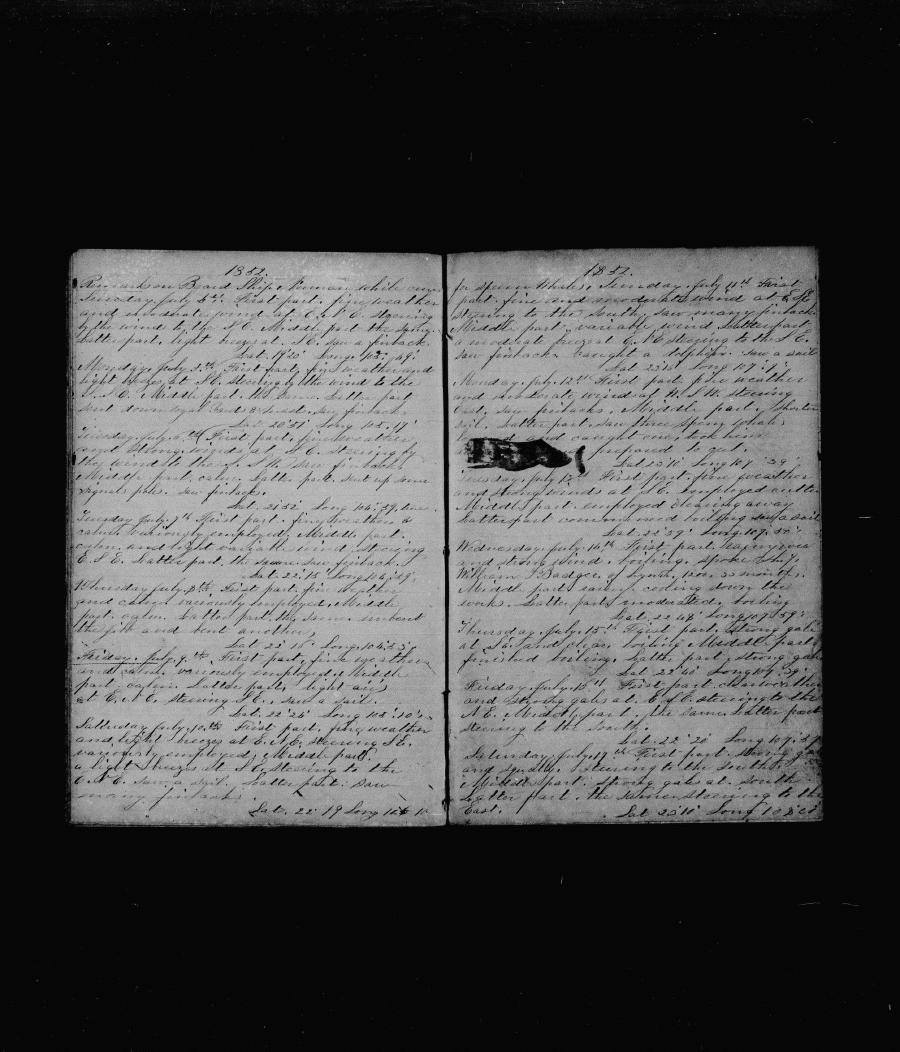 1852.
Remarks on Board Ship Penman while
Sunday July 4th First part, fine weather
and moderate wind at E. N. E. steering
by the wind to the N. E. Middle part the same
Latter part, light breeze at N. E. saw a finback.
Lat. 19° 20' Long. 105° 49'
Monday July 5th First part, fine weather and
light breeze at N. E. steering by the wind to the
N. E. Middle part the same. Latter part
sent down royal yard & mast. saw finbacks
Lat. 20° 51' Long 105° 17'
Tuesday July 6th First part, fine weather
and strong winds at N. E. steering by
the wind to the saw finbacks
Middle part, calm. Latter part, sent up some
signal poles. saw finbacks.
Lat. 21° 52' Long 104° 39'
Tuesday July 7th First part, fine weather &
calm variously employed, Middle part
calm and light variable wind, steering
E. S. E. Latter part the same. saw finback.
Lat. 22° 15' Long 104° 29'
Thursday July 8th First part, fine weather
and calm variously employed, Middle
part, calm. Latter part, the same. unbent
the jib and bent another
Lat 22° 16' Long. 104° 23'
Friday July 9th First part, fine weather
and calm, variously employed, Middle
part, calm. Latter part, light air
at E. N. E. steering N. E., saw a sail.
Lat. 22° 24' Long 105° 10'
Saturday July 10th First part, fine weather
and light breezes at E. N. E. steering S. E.
variously employed, Middle part
a light breeze at N. E. steering to the
E. S. E. saw a sail. Latter part saw
many finbacks
Lat. 22° 19' Long 106°
1852.
for sperm whales, Sunday, July 11th First
part, fine and moderate wind at E. S. E.
steering to the South, saw many finbacks
Middle part, variable wind Latter part
a moderate breeze at E. N. E. steering to the S. E.
saw finbacks caught a dolphin. saw a sail
Lat 22° 25' Long 107°
Monday, July 12th First part, fine weather
and moderate wind at N. W. steering
East, saw finbacks, Middle part, shorten
sail. Latter part, saw three sperm whales
and caught one, took him
prepared to cut.
Lat 23° 10' Long 107° 39'
Tuesday, July 13th First part, fine weather
and strong winds at N. E. employed cutting
Middle part, employed clearing away
Latter part commenced boiling saw a sail
Lat 22° 39' Long. 107° 50'
Wednesday, July 14th First part,
and strong wind, boiling. spoke Ship
William Badger, of Lynn, 1200, 22 months.
Middle part, cooling down the
works. Latter part moderated, boiling
Lat 22° 44' Long 107° 59'
Thursday, July 15th First part, strong gale
at and clear boiling Middle part
finished boiling. Latter part, strong gale
Lat. 22° 40' Long 109° 29'
Friday July 16th First part, clear weather
and strong gale at E. S. E. steering to the
N. E. Middle part, the same. Latter part
steering to the South.
Lat. 22° 20' Long 109°
Saturday July 17th First part, strong gale
and squally. Steering to the South
Middle part. strong gale at South
Latter part, the same steering to the
East.
Lat 23° 10' Long 108°